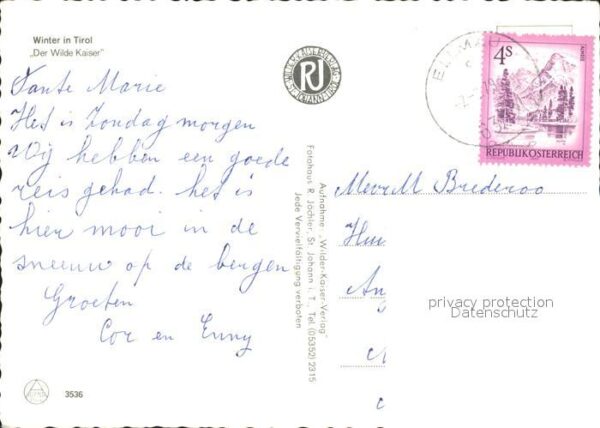 Winter in Tirol
„Der Wilde Kaiser"
Tante Marie
Het is Zondag morgen
Wij hebben een goede
reis gehad. het is
hier mooi in de
sneeuw op de bergen
Groeten
Cor en Enny
3536
RJ
Aufnahme „Wilder-Kaiser-Verlag"
Fotohaus R. Jöchler, St. Johann i. T., Tel. (05352) 2315
Jede Vervielfältigung verboten
ELLMAU
4s
Almsee
REPUBLIK ÖSTERREICH
Mevr M Brederoo
privacy protection
Datenschutz